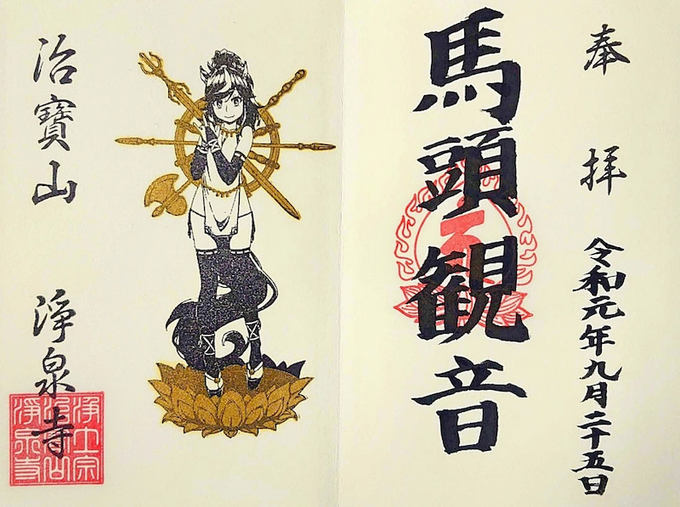 奉拝
令和元年九月二十五日
馬頭観音
治寳山
淨泉寺
浄土宗
治宝山
淨泉寺